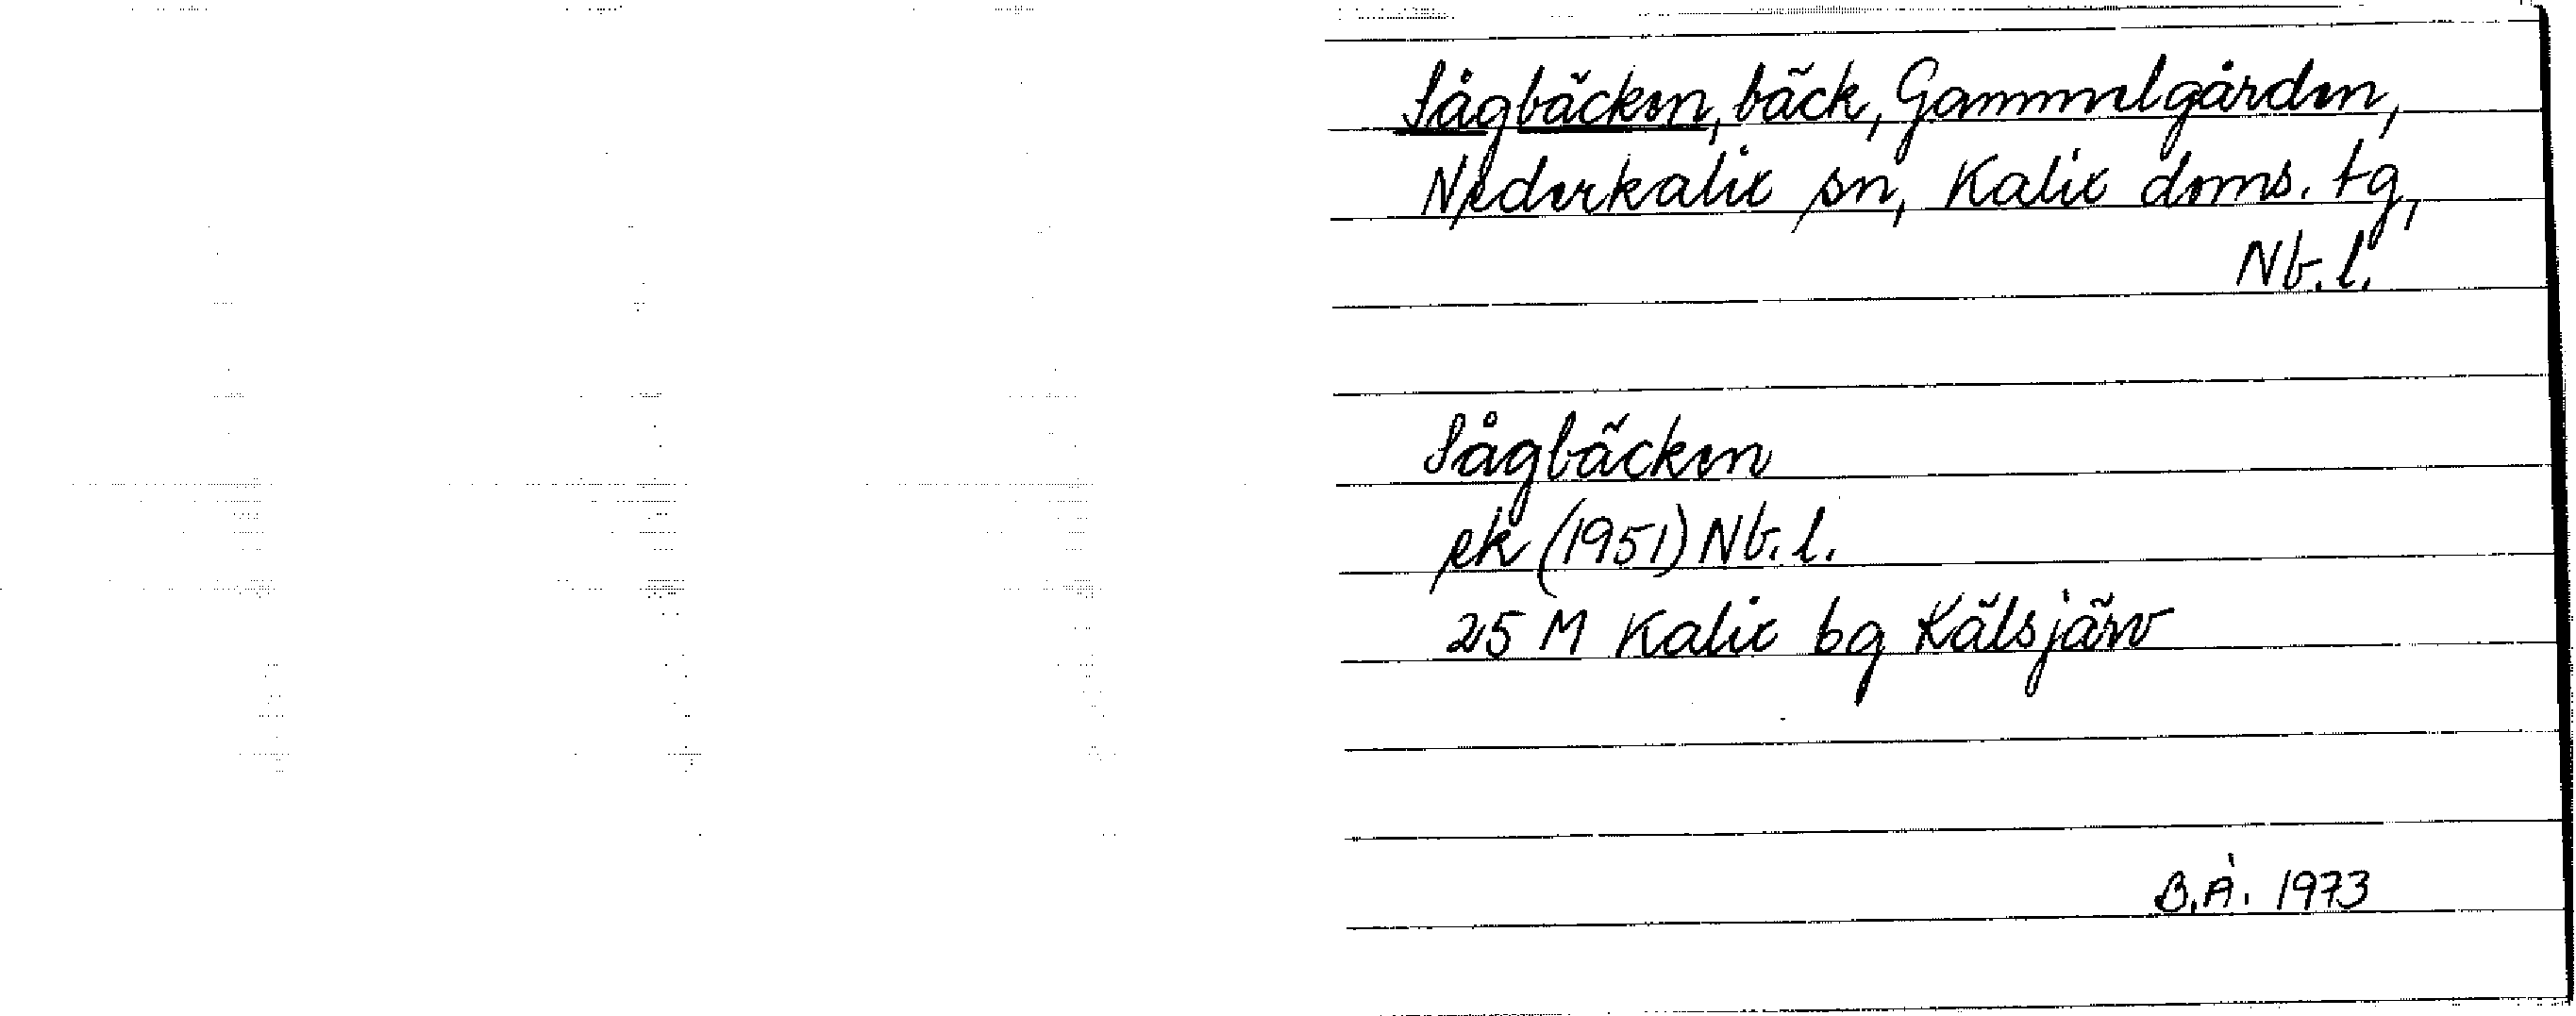 Sågbäcken, bäck, Gammelgården,
Nederkalix sn, Kalix doms. tg,
Nb. l.
Sågbäcken
ek (1951) Nb. l.
25 M Kalix bg Kälsjärv
B.Å. 1973